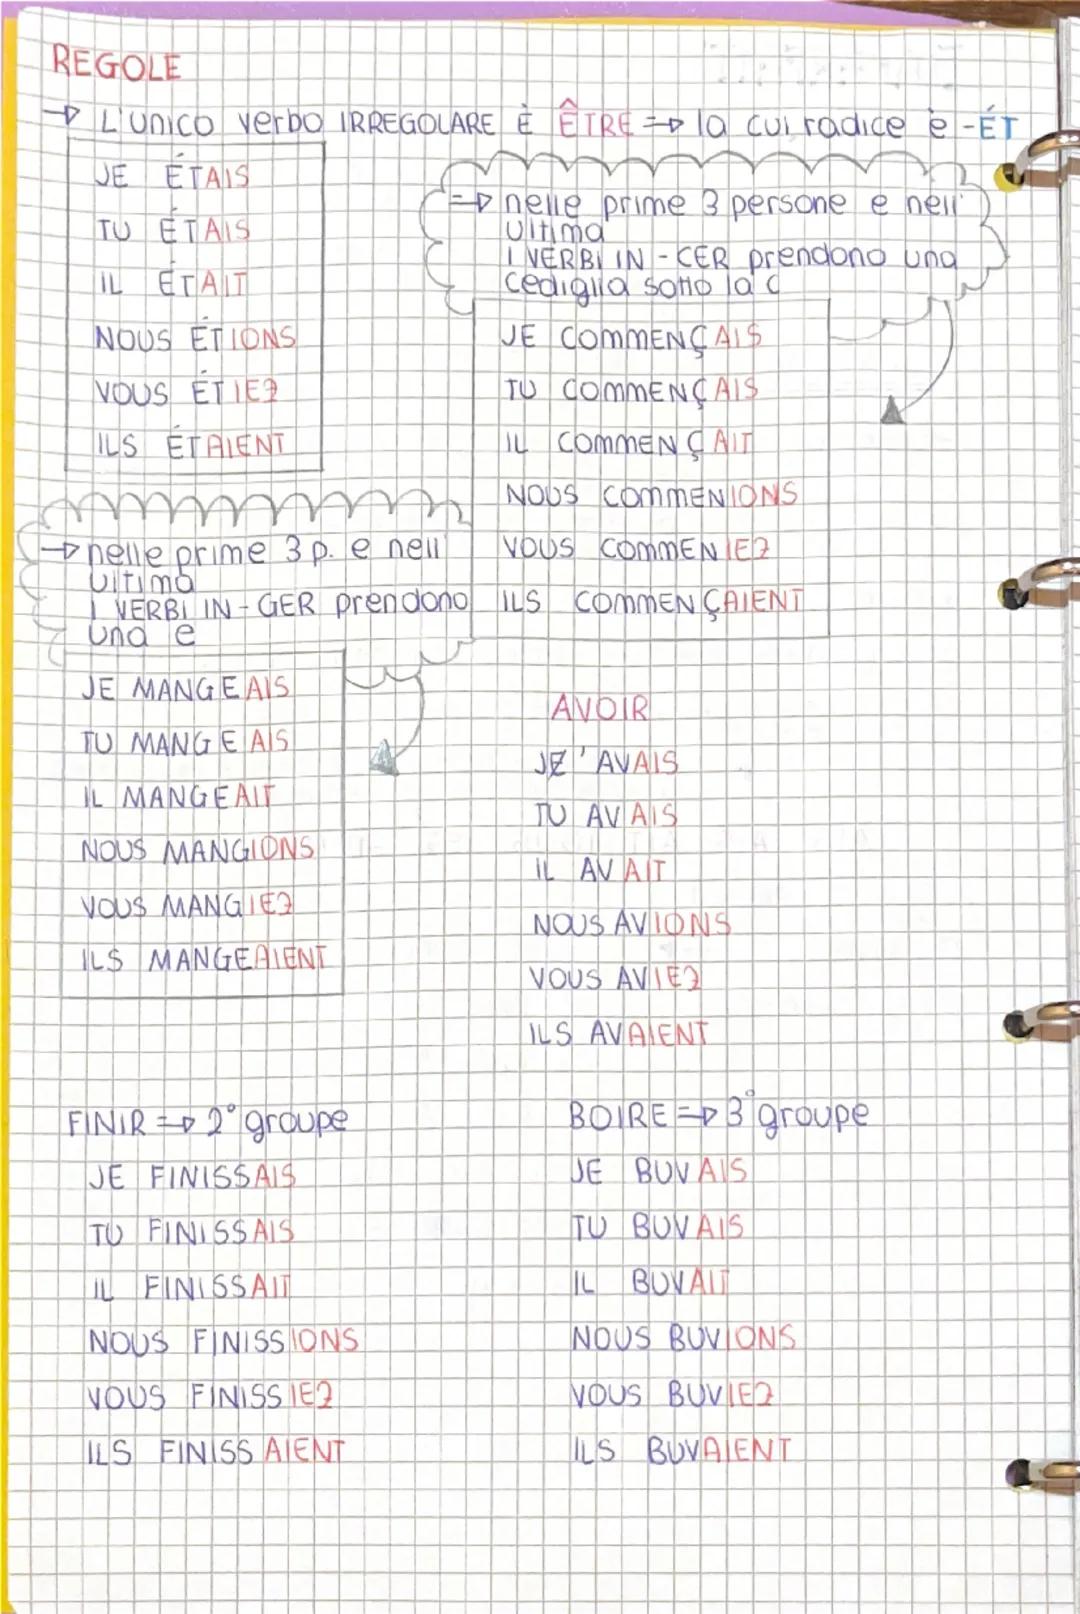 REGOLE
→ L'unico verbo IRREGOLARE È ÊTRE => la cui radice è -ÉT
JE ÉTAIS
TU ÉTAIS
IL ÉTAIT
NOUS ÉTIONS
VOUS ÉTIEZ
ILS ÉTAIENT
=> nelle prime 3 persone e nell'
ultima
I VERBI IN -CER prendono una
cediglia sotto la c
JE COMMENÇAIS
TU COMMENÇAIS
IL COMMENÇAIT
NOUS COMMENIONS
VOUS COMMENIEZ
ILS COMMENÇAIENT
→ nelle prime 3 p. e nell'
ultima
I VERBI IN -GER prendono
una e
JE MANGEAIS
TU MANGEAIS
IL MANGEAIT
NOUS MANGIONS
VOUS MANGIEZ
ILS MANGEAIENT
AVOIR
JE' AVAIS
TU AVAIS
IL AVAIT
NOUS AVIONS
VOUS AVIEZ
ILS AVAIENT
FINIR => 2° groupe
JE FINISSAIS
TU FINISSAIS
IL FINISSAIT
NOUS FINISSIONS
VOUS FINISSIEZ
ILS FINISSAIENT
BOIRE => 3° groupe
JE BUVAIS
TU BUVAIS
IL BUVAIT
NOUS BUVIONS
VOUS BUVIEZ
ILS BUVAIENT